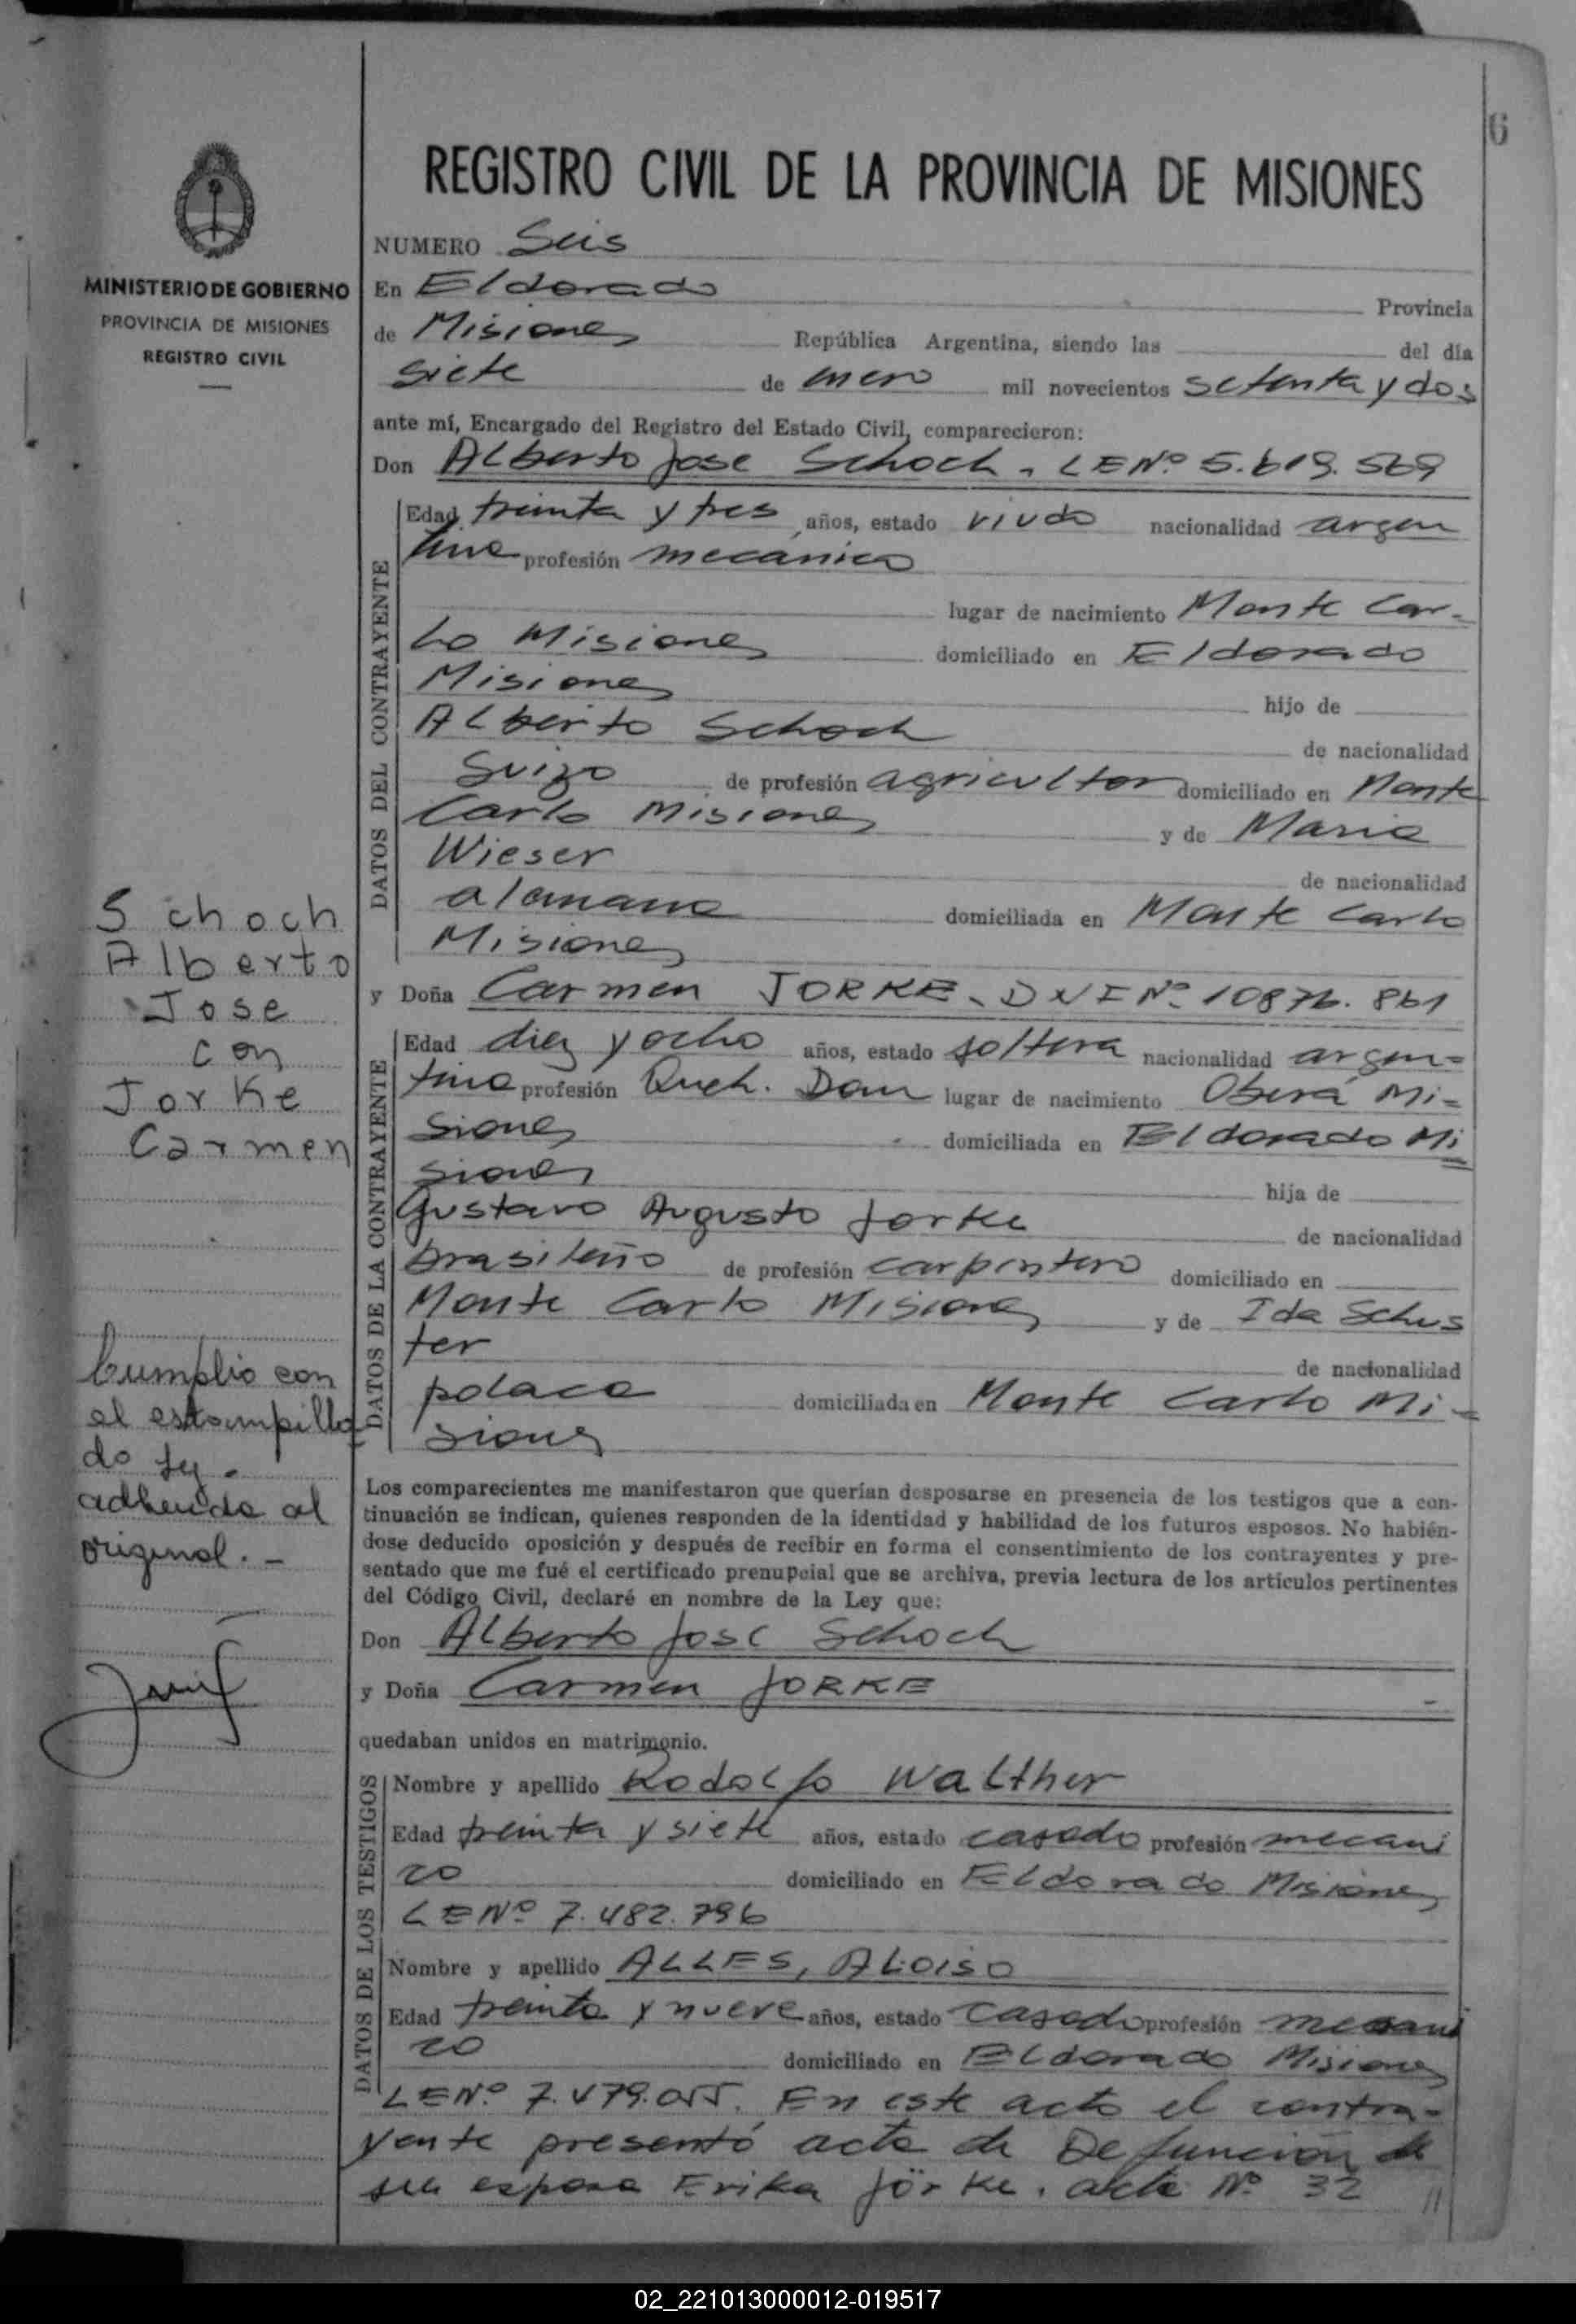 6
REGISTRO CIVIL DE LA PROVINCIA DE MISIONES
MINISTERIO DE GOBIERNO
PROVINCIA DE MISIONES
REGISTRO CIVIL
NUMERO Seis
En Eldorado Provincia
de Misiones República Argentina, siendo las del día
siete de enero mil novecientos setenta y dos
ante mí, Encargado del Registro del Estado Civil, comparecieron:
Don Alberto Jose Schoch - LE Nº 5.619.569
DATOS DEL CONTRAYENTE
Edad treinta y tres años, estado viudo nacionalidad argen
tino profesión mecánico
lugar de nacimiento Monte Car-
lo Misiones domiciliado en Eldorado
Misiones hijo de
Alberto Schoch de nacionalidad
Suizo de profesión agricultor domiciliado en Monte
Carlo Misiones y de Maria
Wieser de nacionalidad
alemana domiciliada en Monte Carlo
Misiones
Schoch
Alberto
Jose
con
Jorke
Carmen
y Doña Carmen JORKE - DNI Nº 10876.861
DATOS DE LA CONTRAYENTE
Edad diez y ocho años, estado soltera nacionalidad argen=
tina profesión Queh. Dom lugar de nacimiento Oberá Mi=
siones domiciliada en Eldorado Mi
siones hija de
Gustavo Augusto Jorke de nacionalidad
brasileño de profesión carpintero domiciliado en
Monte Carlo Misiones y de Ida Schus
ter de nacionalidad
polaca domiciliada en Monte Carlo Mi-
siones
Cumplio con
el estampilla
do ley.
adherido al
original. -
Los comparecientes me manifestaron que querían desposarse en presencia de los testigos que a con-
tinuación se indican, quienes responden de la identidad y habilidad de los futuros esposos. No habién-
dose deducido oposición y después de recibir en forma el consentimiento de los contrayentes y pre-
sentado que me fué el certificado prenupcial que se archiva, previa lectura de los artículos pertinentes
del Código Civil, declaré en nombre de la Ley que:
Don Alberto Jose Schoch
y Doña Carmen JORKE
quedaban unidos en matrimonio.
DATOS DE LOS TESTIGOS
Nombre y apellido Rodolfo Walther
Edad treinta y siete años, estado casado profesión mecani
co domiciliado en Eldorado Misiones
LE Nº 7.482.796
Nombre y apellido ALLES, ALOISO
Edad treinta y nueve años, estado casado profesión mecani
co domiciliado en Eldorado Misiones
LE Nº 7.479.055. En este acto el contra-
yente presentó acta de Defunción de
su esposa Erika Jörke. acta Nº 32 //
02_221013000012-019517